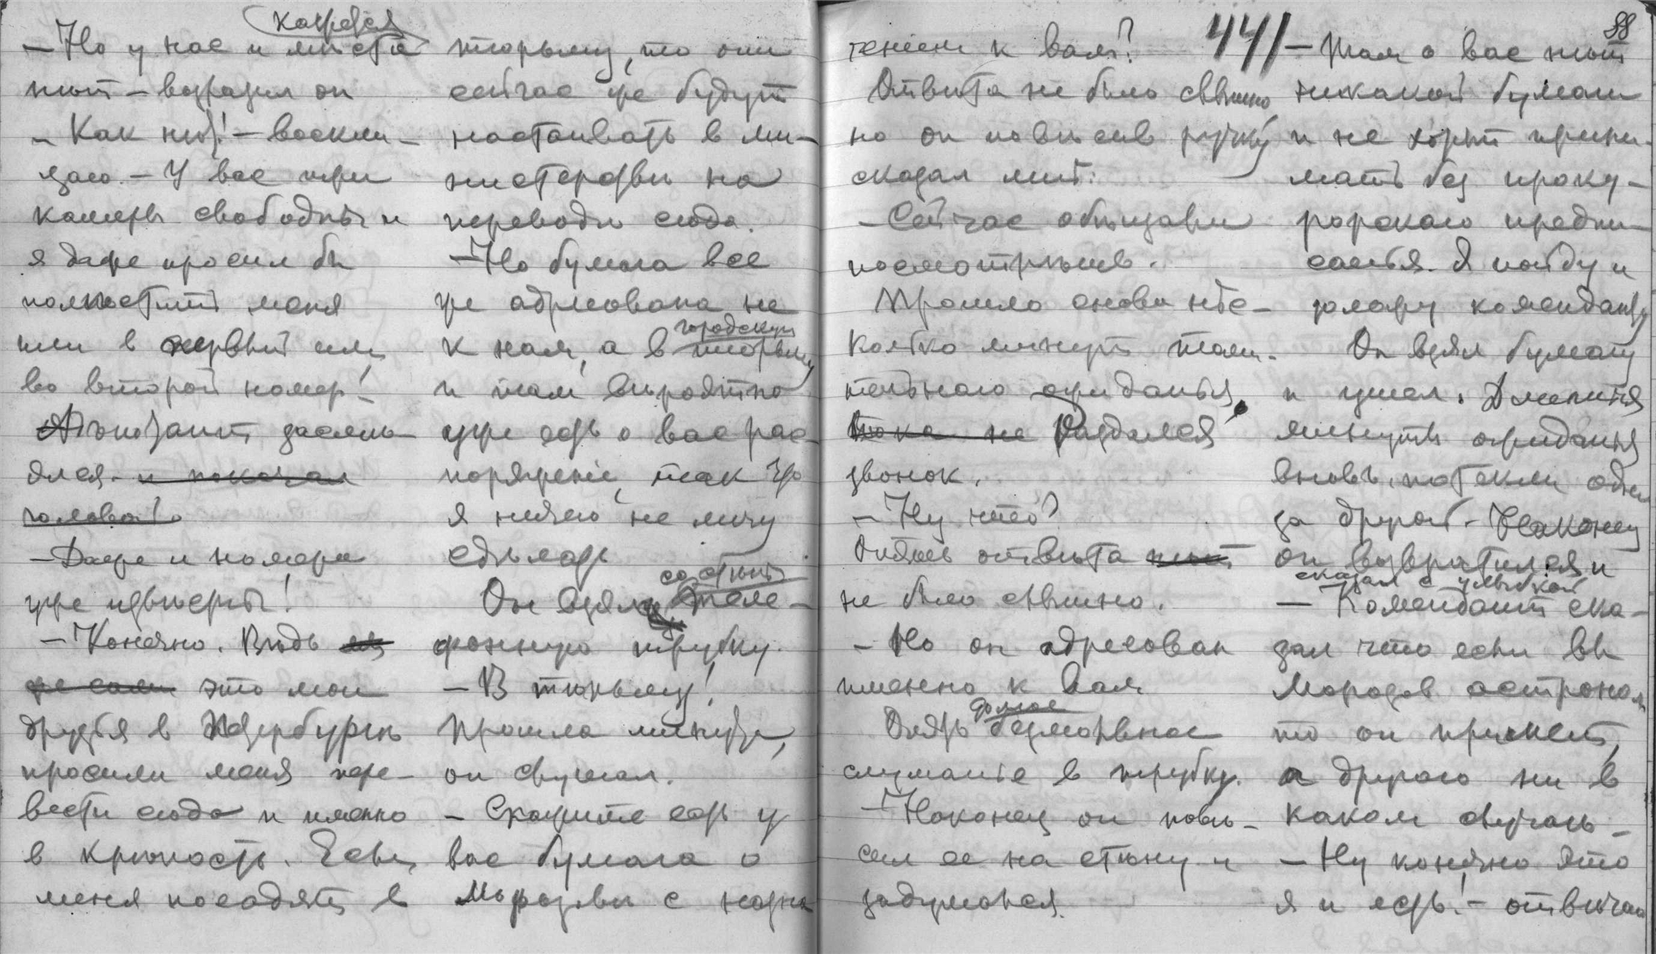 кажется
— Но у нас и мѣста
нѣт — возразил он
— Как нѣт! — воскли-
цаю. — У вас три
камеры свободны и
я даже просил бы
помѣстить меня
или в первый или
во второй номер!
Адъютант засмѣ-
ялся. и покачал
головой.
— Даже и номера
уже извѣстны!
— Конечно. Вѣдь
же сами это мои
друзья в Петербургѣ
просили меня пере-
вести сюда и именно
в крѣпость. Если
меня посадят в
тюрьму, то они
сейчас же будут
настаивать в ми-
нистерствѣ на
переводѣ сюда.
— Но бумага все
же адресована не
городскую
к нам, а в тюрьму
и там вѣроятно
уже есть о вас рас-
поряженіе, так что
я ничего не могу
сдѣлать
со стѣны
Он взял теле-
фонную трубку.
— В тюрьму!
Прошла минута,
он слушал.
— Скажите есть у
вас бумага о
Морозовѣ с назна-
441
88
ченіем к вам?
Отвѣта не было слышно
но он повѣсив ручку
сказал мнѣ:
— Сейчас обѣщали
посмотрѣть.
Прошло снова нѣс-
колько минут томи-
тельного ожиданья,
пока не Раздался
звонок.
— Ну что?
Опять отвѣта
не было слышно.
— Но он адресован
именно к вам
долгое
Опять безмолвное
слушанье в трубку.
— Наконец он повѣ-
сил ее на стѣну и
задумался.
— Там о вас нѣт
никакой бумаги
и не хотят прини-
мать без проку-
рорскаго предпи-
санья. Я пойду и
доложу коменданту
Он взял бумагу
и ушел. Длились
минуты ожиданья
вновь потекли одна
за другой. Наконец
он возвратился и
сказал с улыбкой
— Комендант ска-
зал что если вы
Морозов астроном
то он примет,
а другого ни в
каком случаѣ —
— Ну конечно это
я и есть! — отвѣчаю